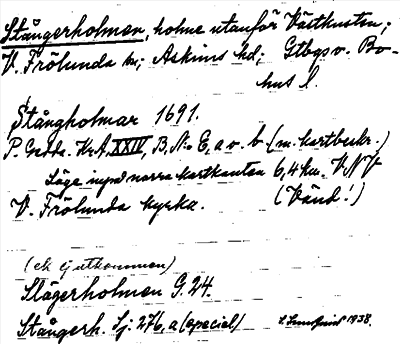 Stångerholmen, holme utanför Västkusten;
V. Frölunda sn; Askims hd; Gtbgs o. Bo-
hus l.
Stångholmar 1691.
P. Gedda. Kr.A. XXIV, B. No. E, a o. b (m. kartbeskr.)
Läge invid norra kartkanten 6,4 km. VNV
V. Frölunda kyrka. (Vänd!)
(ek ej utkommen)
Stågerholmen G. 24.
Stångerh. Sj: 276, a (special) 1938.